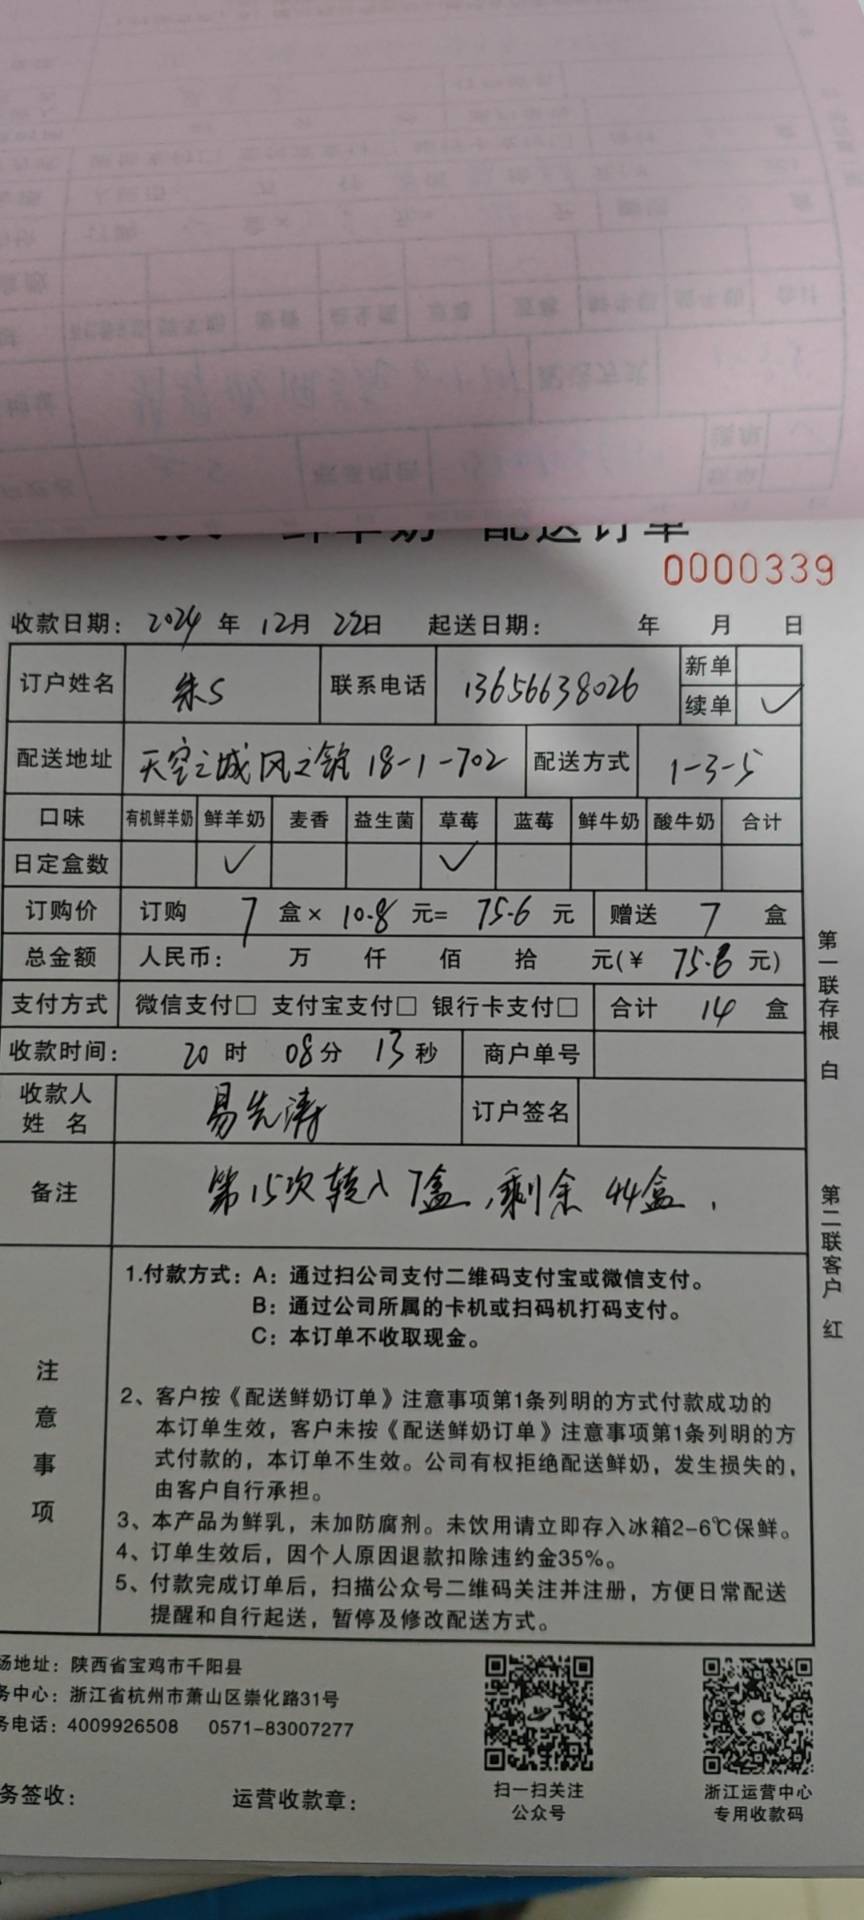 鲜羊奶 配送订单
0000339
收款日期: 2024 年 12月 22日 起送日期: 年 月 日
订户姓名 朱S 联系电话 13656638026 新单
续单 ✓
配送地址 天空之城风之筑 18-1-702 配送方式 1-3-5
口味 有机鲜羊奶 鲜羊奶 麦香 益生菌 草莓 蓝莓 鲜牛奶 酸牛奶 合计
日定盒数 ✓ ✓
订购价 订购 7 盒× 10.8 元= 75.6 元 赠送 7 盒
总金额 人民币: 万 仟 佰 拾 元(¥ 75.6 元)
支付方式 微信支付□ 支付宝支付□ 银行卡支付□ 合计 14 盒
收款时间: 20 时 08分 13秒 商户单号
收款人姓名 易先涛 订户签名
备注 第15次转入7盒,剩余 44盒.
注意事项
1.付款方式: A: 通过扫公司支付二维码支付宝或微信支付。
B: 通过公司所属的卡机或扫码机打码支付。
C: 本订单不收取现金。
2、客户按《配送鲜奶订单》注意事项第1条列明的方式付款成功的
本订单生效，客户未按《配送鲜奶订单》注意事项第1条列明的方
式付款的，本订单不生效。公司有权拒绝配送鲜奶，发生损失的，
由客户自行承担。
3、本产品为鲜乳，未加防腐剂。未饮用请立即存入冰箱2-6℃保鲜。
4、订单生效后，因个人原因退款扣除违约金35%。
5、付款完成订单后，扫描公众号二维码关注并注册，方便日常配送
提醒和自行起送，暂停及修改配送方式。
第一联存根 白
第二联客户 红
场地址: 陕西省宝鸡市千阳县
务中心: 浙江省杭州市萧山区崇化路31号
务电话: 4009926508 0571-83007277
务签收: 运营收款章:
扫一扫关注
公众号
浙江运营中心
专用收款码